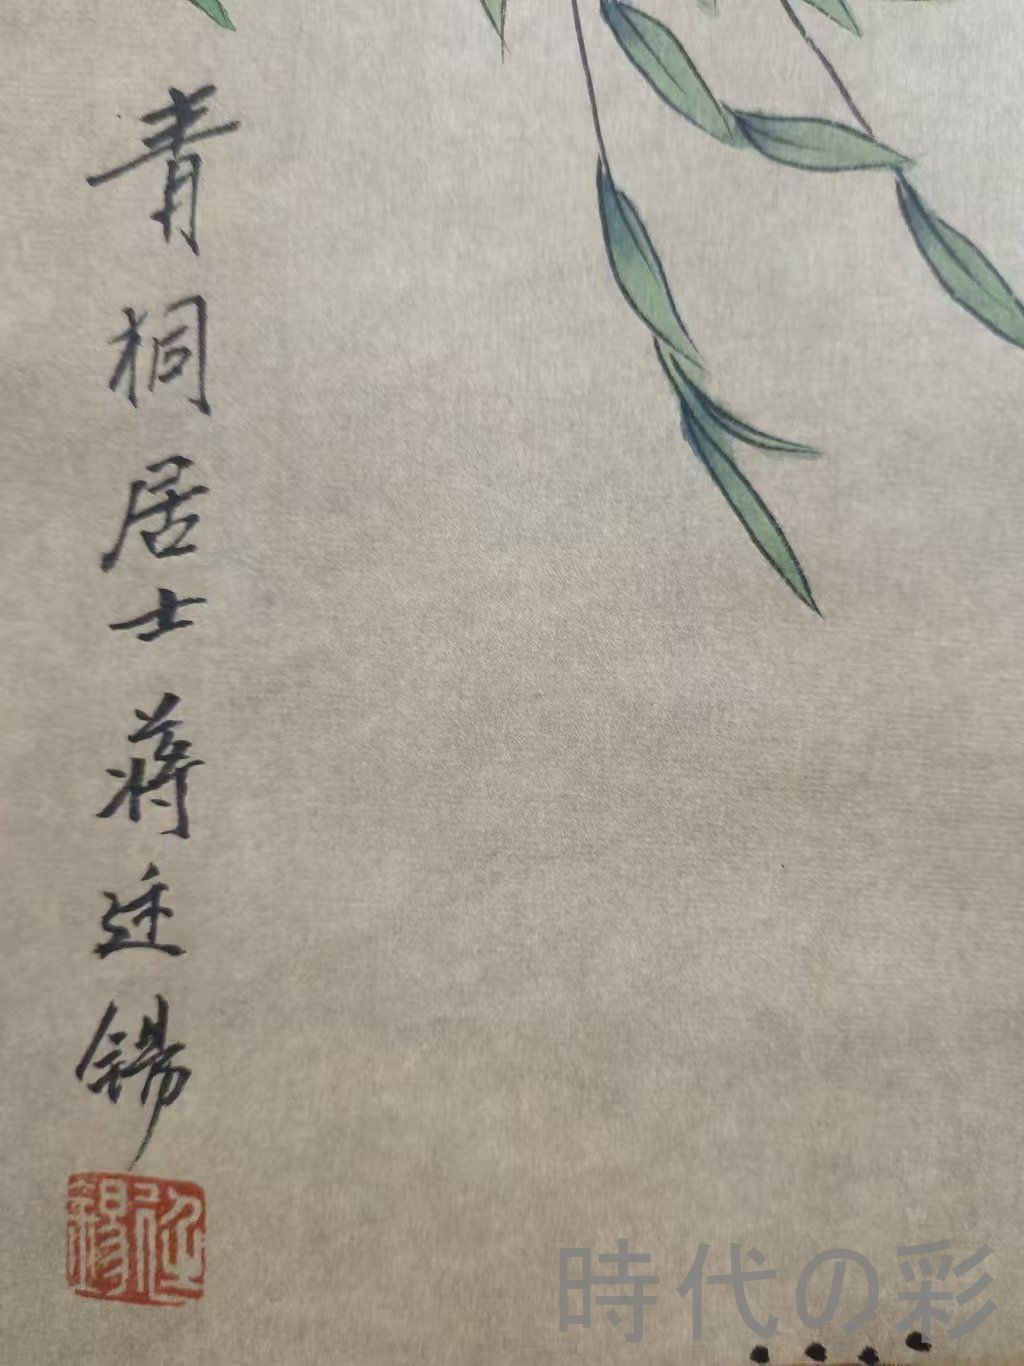 青桐居士蒋廷錫
廷錫
時代の彩